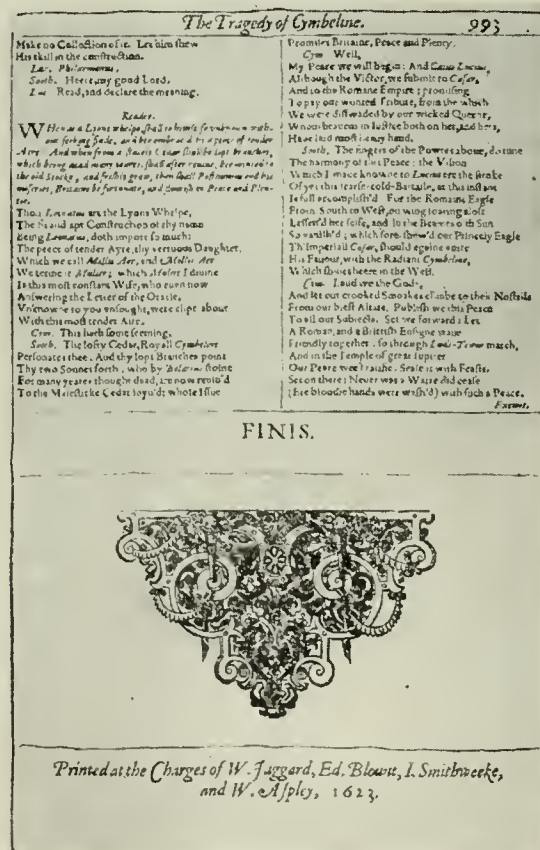 The Tragedy of Cymbeline.
993
Make no Collection of it. Let him shew
His skill in the construction.
Luc. Philarmonus.
Sooth. Heere, my good Lord.
Luc. Read, and declare the meaning.
Reades.
WHen as a Lyons whelpe, shall to himselfe vnknown, with-
out seeking finde, and bee embrac'd by a peece of tender
Ayre: And when from a stately Cedar shall be lopt branches,
which being dead many yeares, shall after reuiue, bee ioynted to
the old Stocke, and freshly grow, then shall Posthumus end his
miseries, Britaine be fortunate, and flourish in Peace and Plen-
tie.
Thou Leonatus art the Lyons Whelpe,
The fit and apt Construction of thy name
Being Leonatus, doth import so much:
The peece of tender Ayre, thy vertuous Daughter,
Which we call Mollis Aer, and Mollis Aer
We terme it Mulier; which Mulier I diuine
Is this most constant Wife, who euen now
Answering the Letter of the Oracle,
Vnknowne to you vnsought, were clipt about
With this most tender Aire.
Cym. This hath some seeming.
Sooth. The lofty Cedar, Royall Cymbeline
Personates thee: And thy lopt Branches, point
Thy two Sonnes forth: who by Belarius stolne
For many yeares thought dead, are now reuiu'd
To the Maiesticke Cedar ioyn'd; whose Issue
Promises Britaine, Peace and Plenty.
Cym. Well,
My Peace we will begin: And Caius Lucius,
Although the Victor, we submit to Cæsar,
And to the Romane Empire; promising
To pay our wonted Tribute, from the which
We were disswaded by our wicked Queene,
Whom heauens in Iustice both on her, and hers,
Haue laid most heauy hand.
Sooth. The fingers of the Powres aboue, do tune
The harmony of this Peace: the Vision
Which I made knowne to Lucius ere the stroke
Of yet this scarse-cold-Battaile, at this instant
Is full accomplish'd. For the Romaine Eagle
From South to West, on wing soaring aloft
Lessen'd her selfe, and in the Beames o'th Sun
So vanish'd; which fore-shew'd our Princely Eagle
Th'Imperiall Cæsar, should againe vnite
His Fauour, with the Radiant Cymbeline,
Which shines heere in the West.
Cym. Laud we the Gods,
And let our crooked Smoakes climbe to their Nostrils
From our blest Altars. Publish we this Peace
To all our Subiects. Set we forward: Let
A Roman, and a Brittish Ensigne waue
Friendly together: so through Luds-Towne march,
And in the Temple of great Iupiter
Our Peace wee'l ratifie: Seale it with Feasts.
Set on there: Neuer was a Warre did cease
(Ere bloodie hands were wash'd) with such a Peace.
Exeunt.
FINIS.
Printed at the Charges of W. Jaggard, Ed. Blount, I. Smithweeke,
and W. Aspley, 1623.